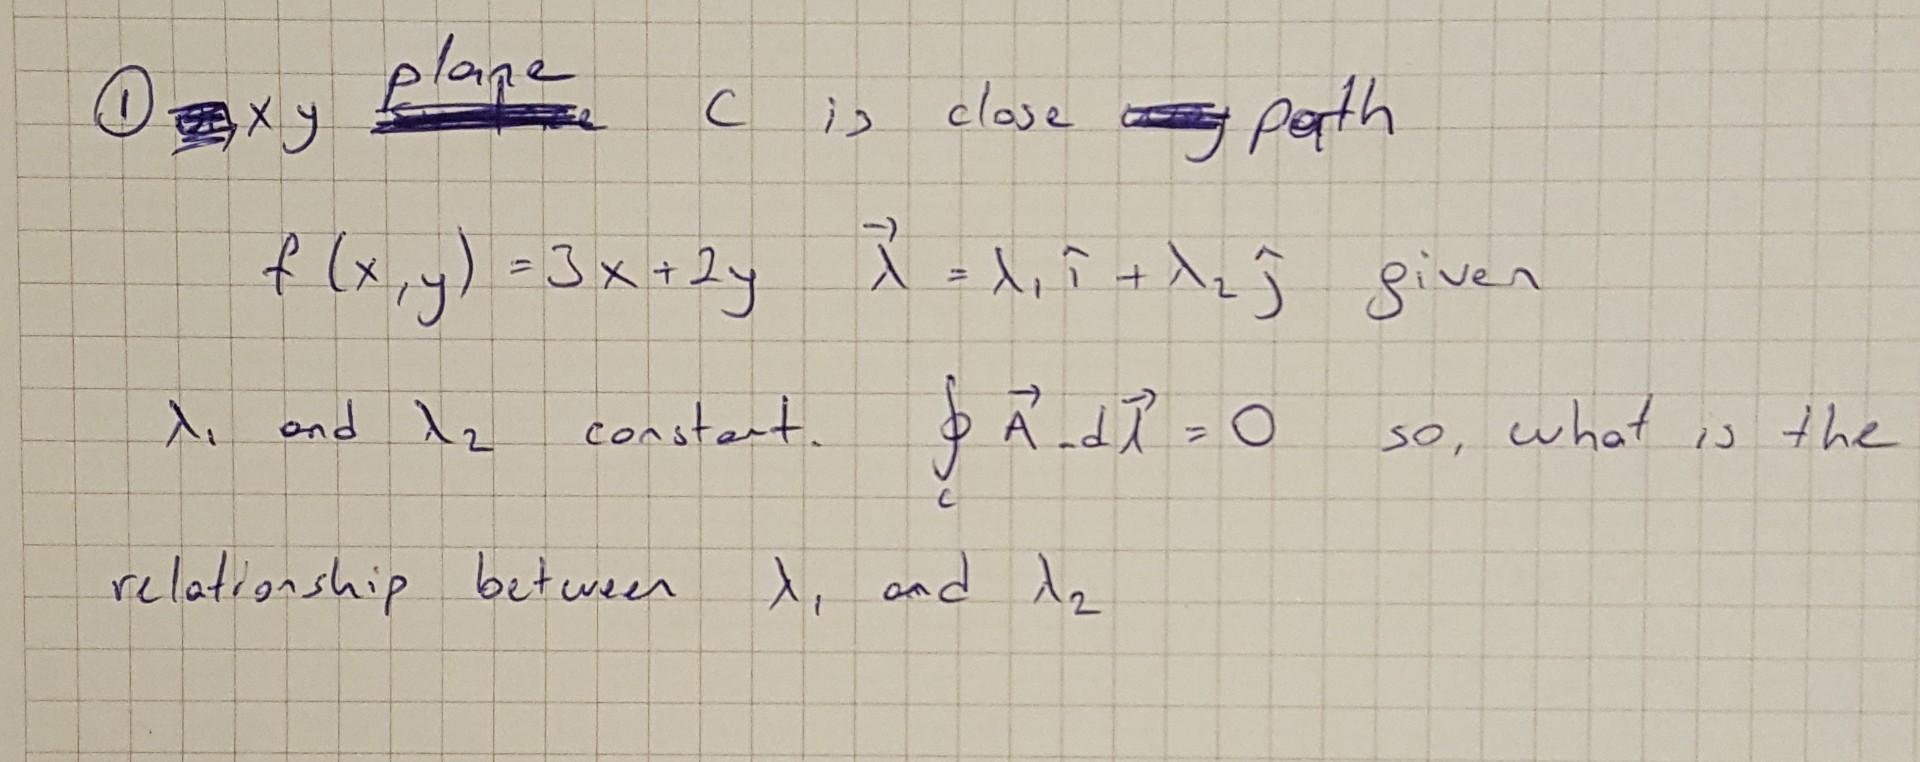 ① xy plane C is close path
f(x,y) = 3x + 2y λ⃗ = λ₁ î + λ₂ ĵ given
λ₁ and λ₂ constant. ∮_c A⃗ . dl⃗ = 0 so, what is the
relationship between λ₁ and λ₂